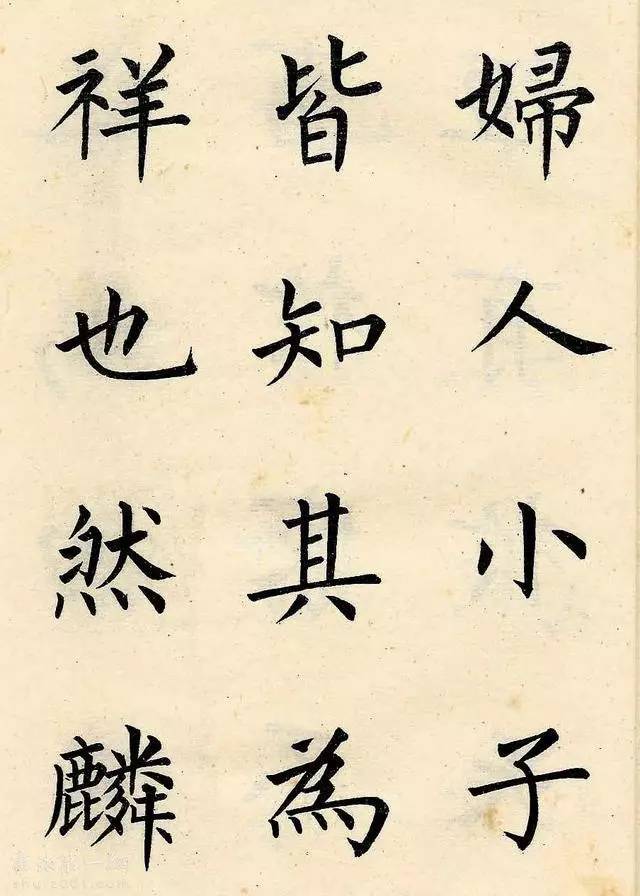 婦人小子
皆知其為
祥也然麟